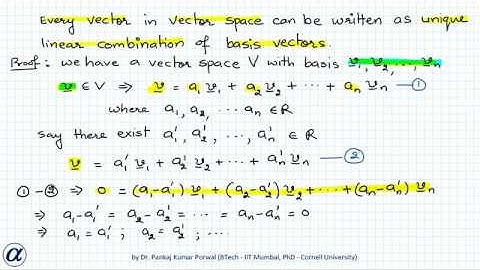 Every vector in vector space can be written as unique
linear combination of basis vectors.
Proof : we have a vector space V with basis v₁, v₂, ..., vₙ
v ∈ V ⇒ v = a₁ v₁ + a₂ v₂ + ··· + aₙ vₙ — ①
where a₁, a₂, ··· aₙ ∈ R
say there exist a₁', a₂', ..., aₙ' ∈ R
v = a₁' v₁ + a₂' v₂ + ··· + aₙ' vₙ — ②
① - ② ⇒ 0 = (a₁-a₁') v₁ + (a₂-a₂') v₂ + ···· + (aₙ-aₙ') vₙ
⇒ a₁-a₁' = a₂-a₂' = ··· = aₙ-aₙ' = 0
⇒ a₁ = a₁' ; a₂ = a₂' ; ....
α
by Dr. Pankaj Kumar Porwal (BTech - IIT Mumbai, PhD - Cornell University)